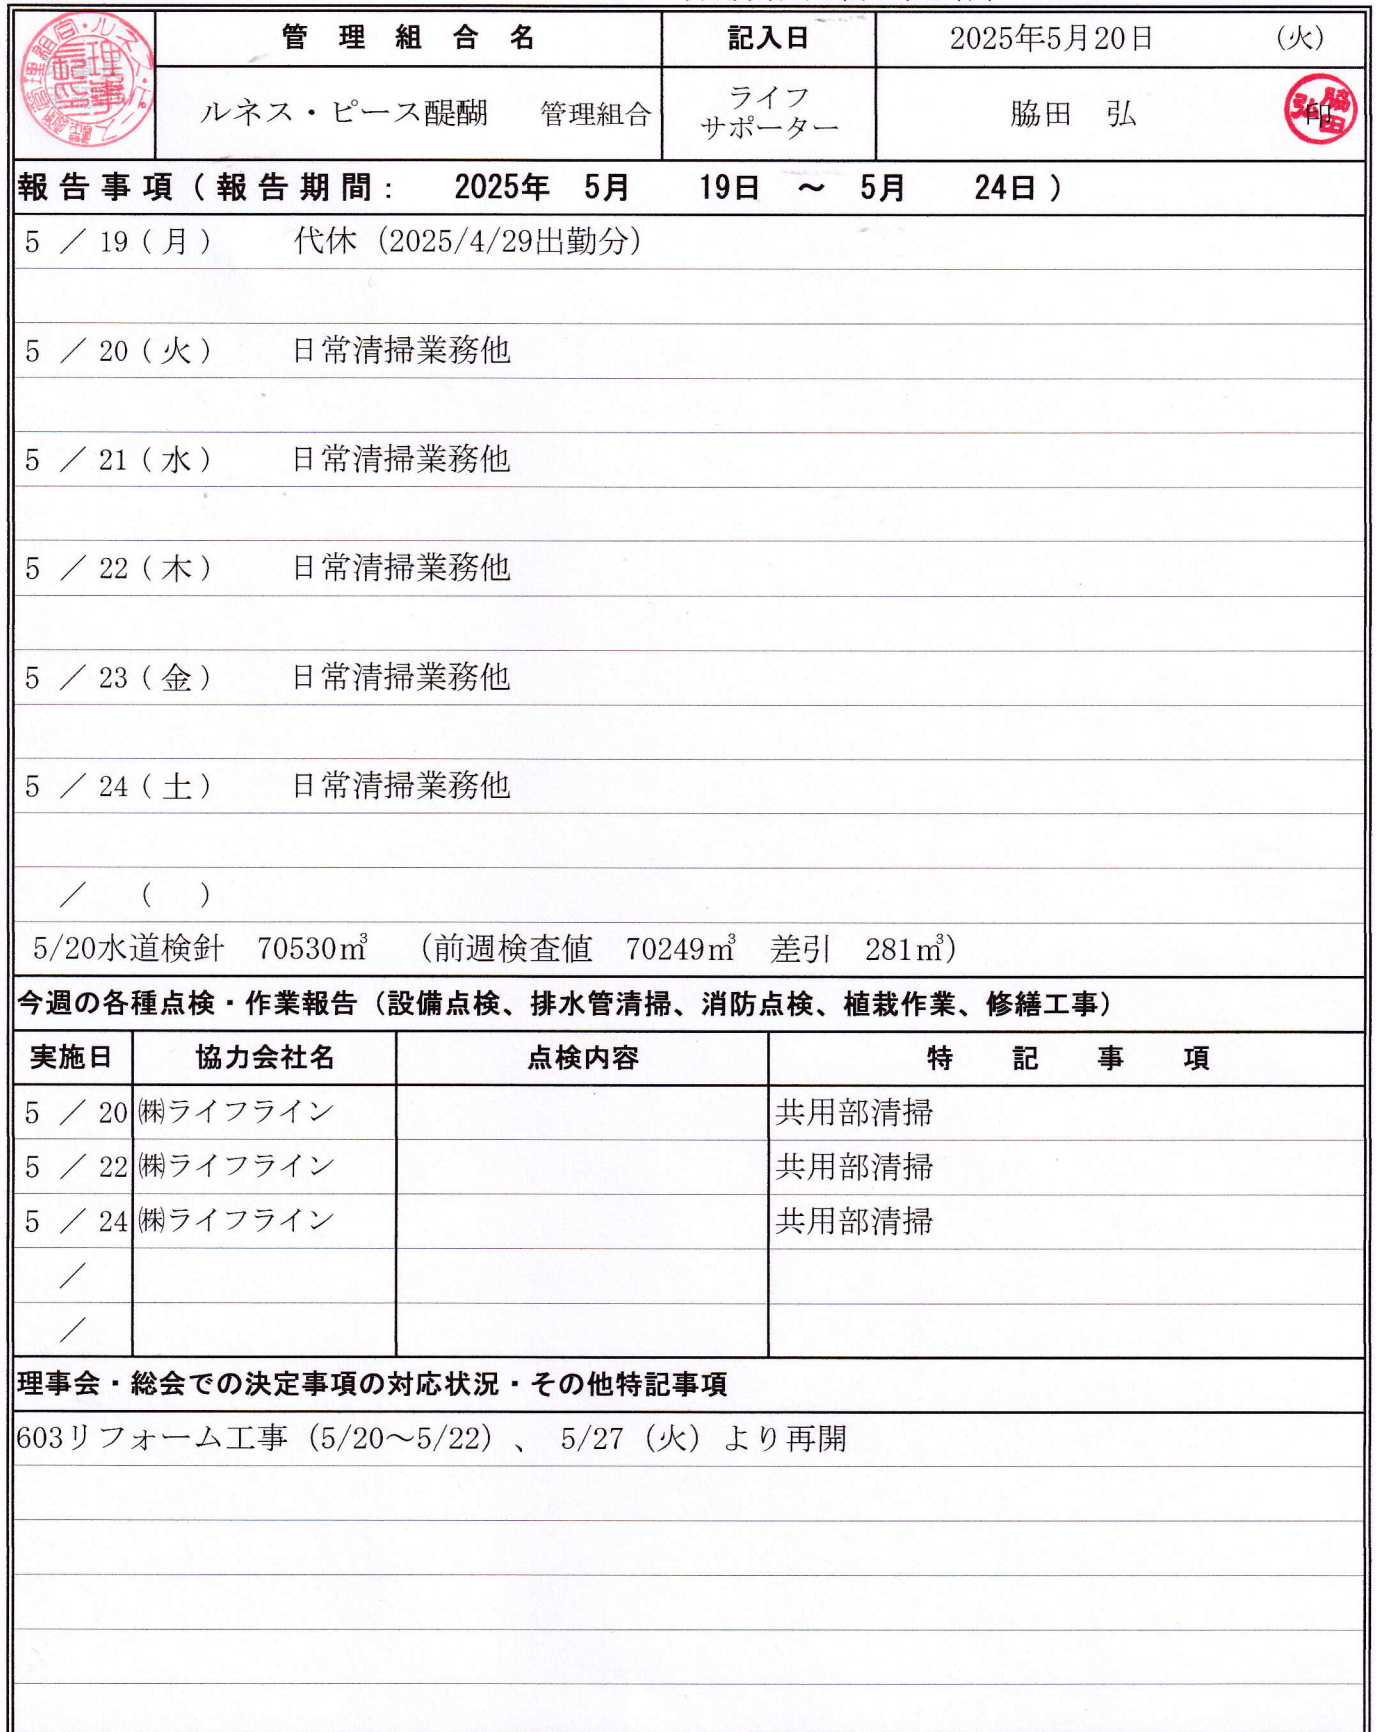 管理組合名 記入日 2025年5月20日 (火)
ルネス・ピース醍醐 管理組合 ライフサポーター 脇田 弘 印
報告事項(報告期間: 2025年 5月 19日 ～ 5月 24日)
5 ／ 19(月) 代休（2025/4/29出勤分）
5 ／ 20(火) 日常清掃業務他
5 ／ 21(水) 日常清掃業務他
5 ／ 22(木) 日常清掃業務他
5 ／ 23(金) 日常清掃業務他
5 ／ 24(土) 日常清掃業務他
／ ( )
5/20水道検針 70530㎥ （前週検査値 70249㎥ 差引 281㎥）
今週の各種点検・作業報告（設備点検、排水管清掃、消防点検、植栽作業、修繕工事）
実施日 協力会社名 点検内容 特記事項
5 ／ 20 ㈱ライフライン 共用部清掃
5 ／ 22 ㈱ライフライン 共用部清掃
5 ／ 24 ㈱ライフライン 共用部清掃
／
／
理事会・総会での決定事項の対応状況・その他特記事項
603リフォーム工事（5/20～5/22）、 5/27（火）より再開